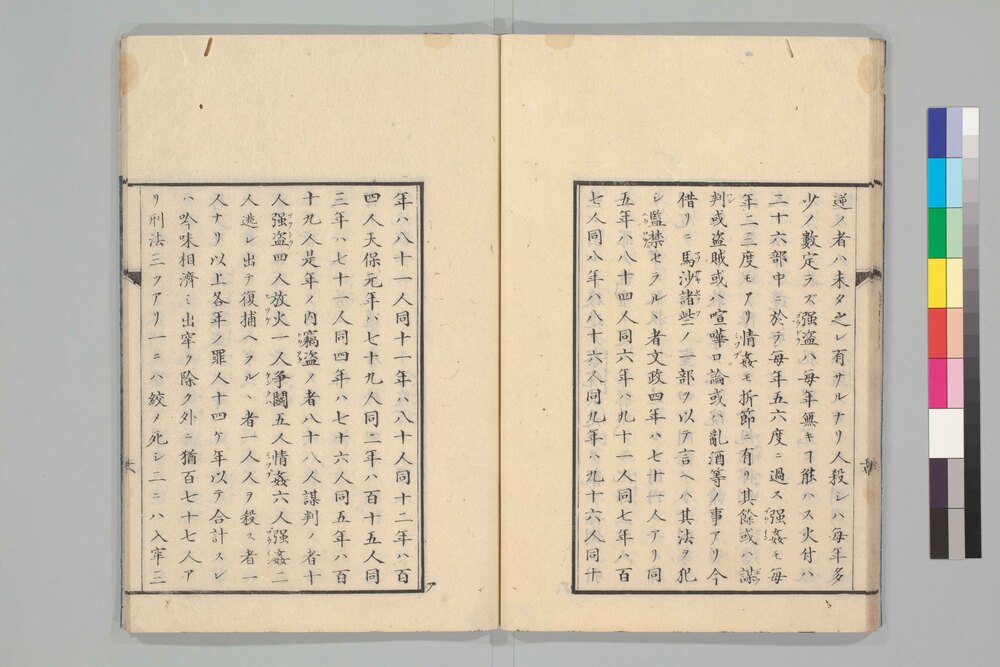 逆ノ者ハ未タ之レ有サルナリ人殺シハ毎年多
少ノ數定ラズ强盗ハ毎年無キヿ能ハス火付ハ
二十六部中ニ於テ毎年五六度ニ過ス强姦モ毎
年二三度モアリ情姦モ折節ニ有リ其餘或ハ謀
判或盗賊或ハ喧嘩口論或ハ亂酒等ノ事アリ今
借リニ馬沙諸些ノ一部ヲ以テ言ヘハ其法ヲ犯
シ監禁セラルヽ者文政四年ハ七十一人アリ同
五年ハ八十四人同六年ハ九十一人同七年ハ百
七人同八年ハ八十六人同九年ハ九十六人同十
年ハ八十一人同十一年ハ八十人同十二年ハ百
四人天保元年ハ七十九人同二年ハ百十五人同
三年ハ七十一人同四年ハ七十六人同五年ハ百
十九人是年ノ内竊盗ノ者八十八人謀判ノ者十
人强盗四人放火一人爭鬪五人情姦六人强姦二
人逃レ出テ復捕ヘラルヽ者一人人ヲ殺ス者一
人ナリ以上各年ノ罪人十四ケ年以テ合計スレ
ハ吟味相濟ミ出牢ヲ除ク外ニ猶百七十七人ア
リ刑法三ツアリ一ニハ絞メ死シ二ニハ入牢三